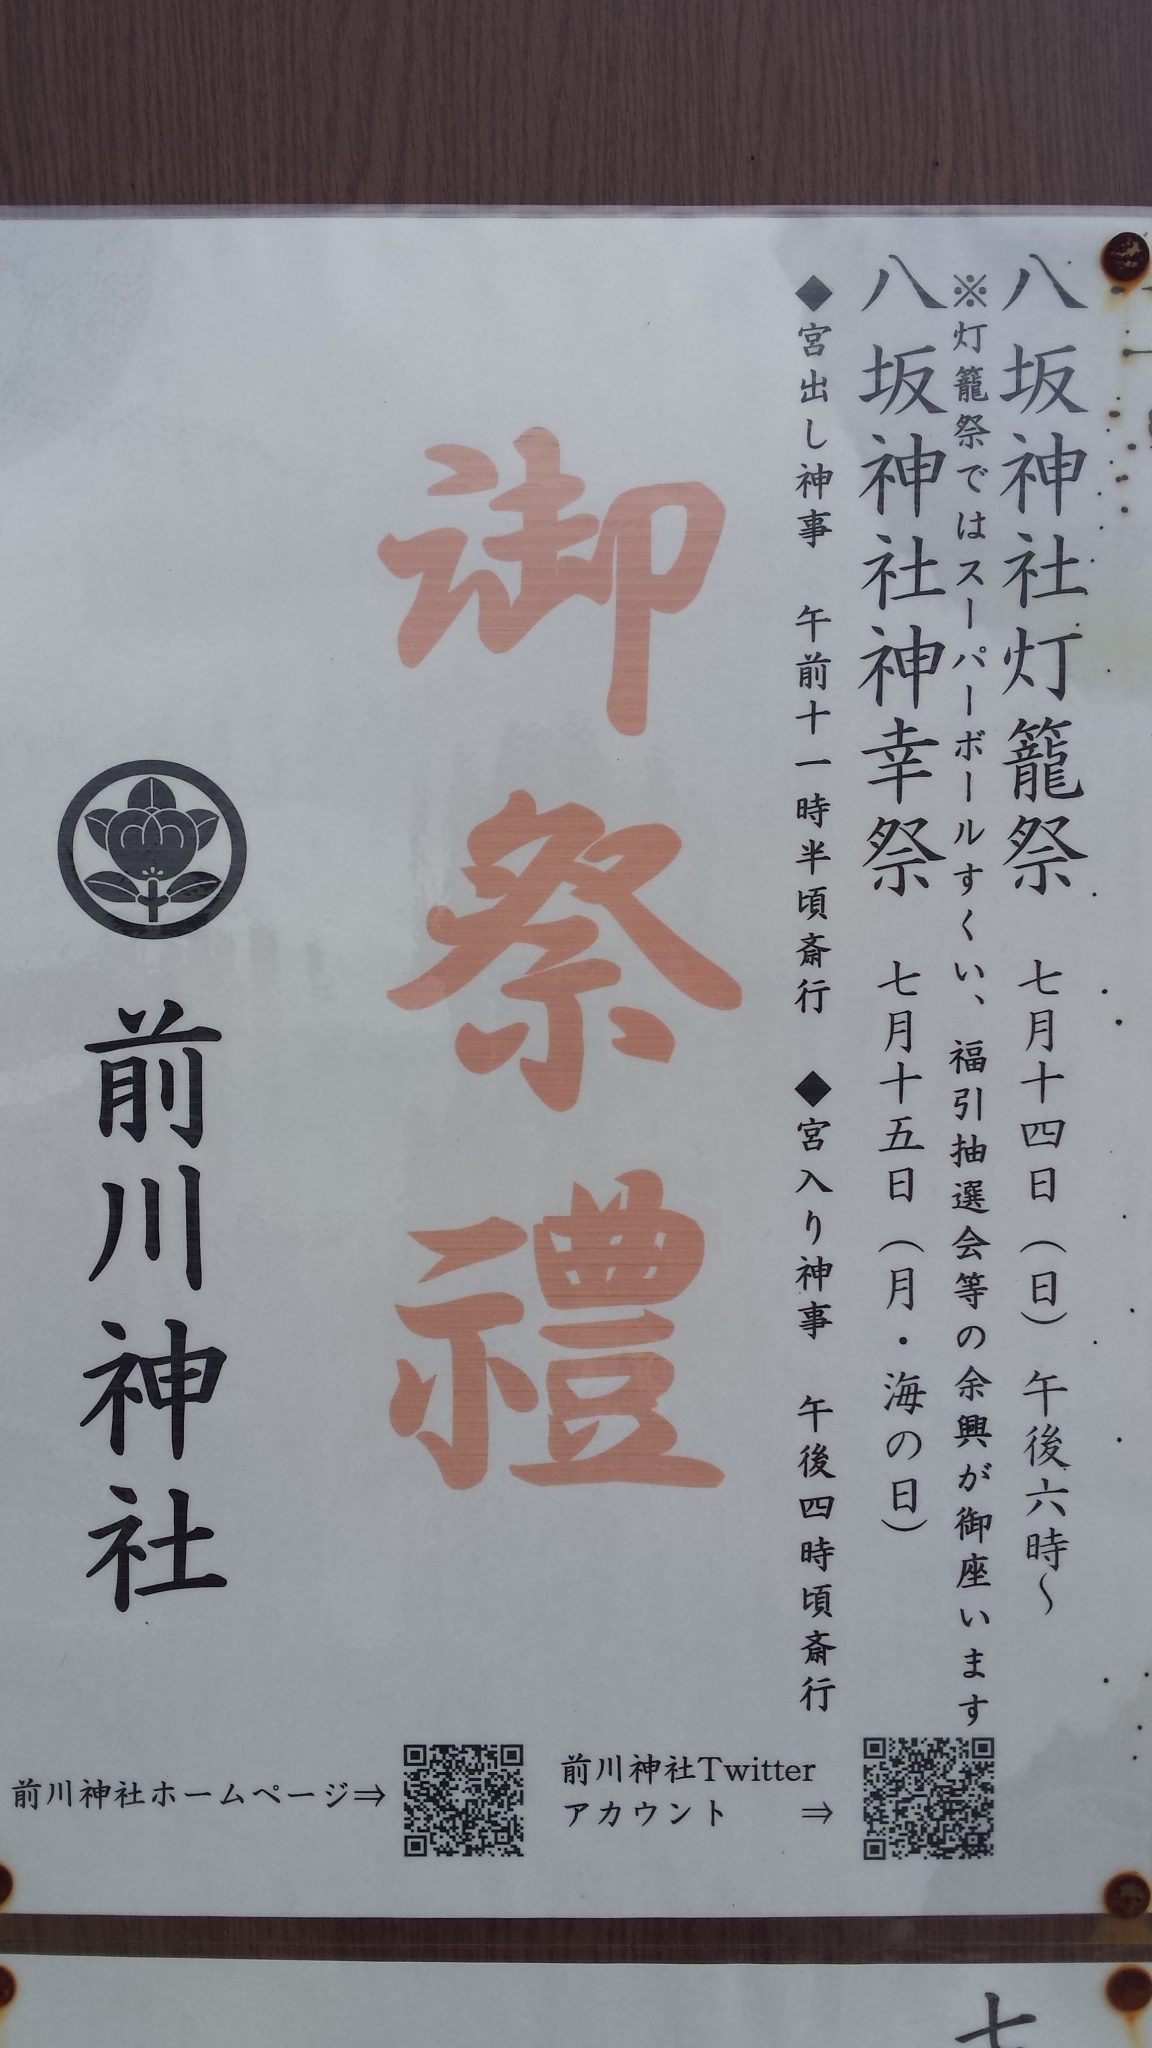 八坂神社灯籠祭　七月十四日（日）午後六時～
※灯籠祭ではスーパーボールすくい、福引抽選会等の余興が御座います
八坂神社神幸祭　七月十五日（月・海の日）
◆宮出し神事　午前十一時半頃斎行　◆宮入り神事　午後四時頃斎行
御祭禮
前川神社
前川神社ホームページ⇒
前川神社Twitter
アカウント　⇒
七